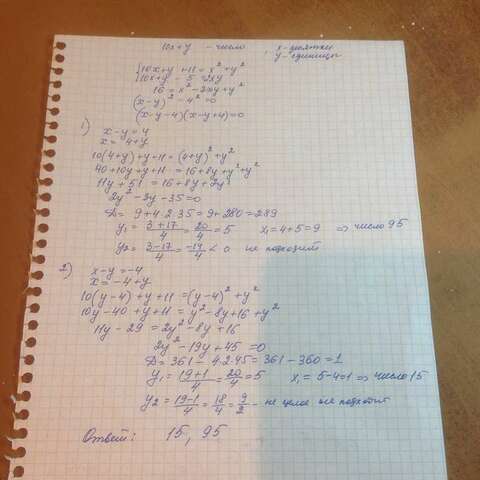 10x+y - число , x - десятки
y - единицы
{10x+y+11 = x²+y²
10x+y - 5 = 2xy
16 = x²-2xy+y²
(x-y)² - 4² = 0
(x-y-4)(x-y+4)=0
1) x-y=4
x = 4+y
10(4+y)+y+11=(4+y)²+y²
40+10y+y+11 = 16+8y+y²+y²
11y+51 = 16+8y+2y²
2y²-3y-35=0
D= 9+4·2·35=9+280=289
y₁ = (3+17)/4 = 20/4 = 5 x₁=4+5=9 ⇒ число 95
y₂ = (3-17)/4 = -14/4 < 0 не подходит
2) x-y=-4
x = -4+y
10(y-4)+y+11=(y-4)²+y²
10y-40+y+11=y²-8y+16+y²
11y-29=2y²-8y+16
2y²-19y+45=0
D= 361-4·2·45=361-360=1
y₁ = (19+1)/4 = 20/4 = 5 x₁=5-4=1 ⇒ число 15
y₂ = (19-1)/4 = 18/4 = 9/2 - не целое не подходит
Ответ: 15, 95